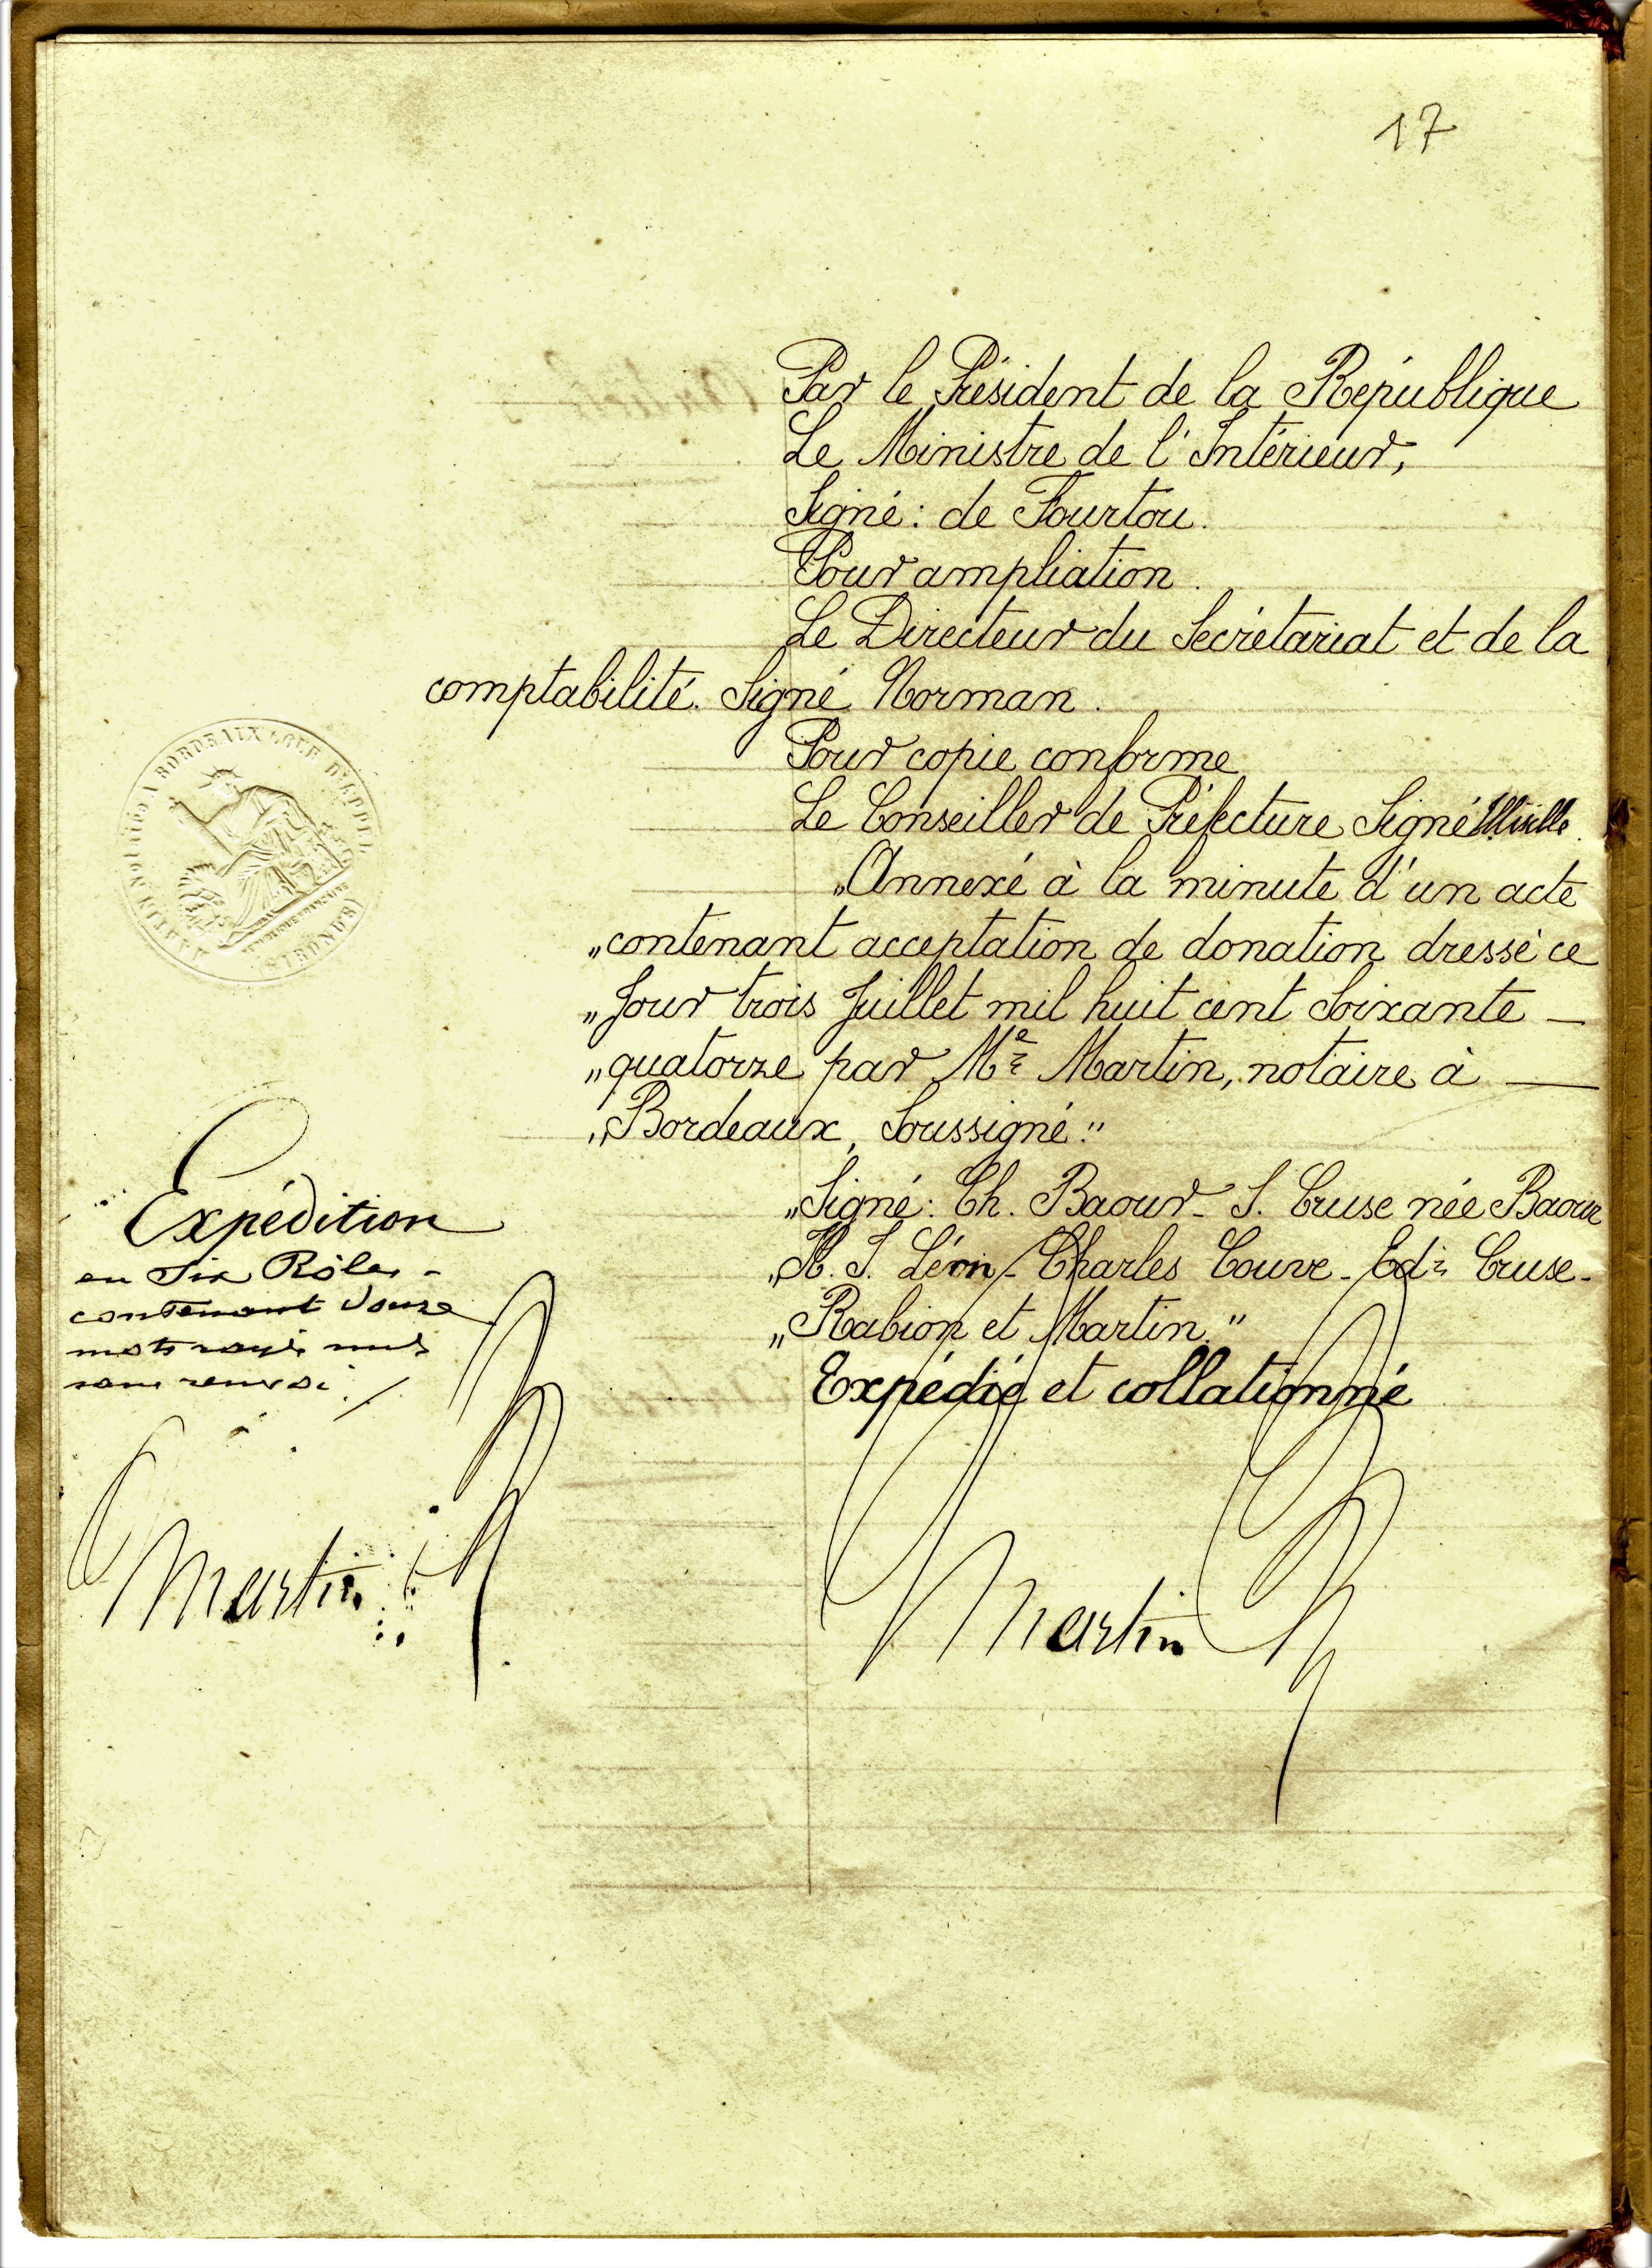 17
Par le Président de la République
Le Ministre de l'Intérieur,
Signé: de Fourtou.
Pour ampliation.
Le Directeur du Secrétariat et de la
comptabilité. Signé Norman.
Pour copie conforme
Le Conseiller de Préfecture Signé
„Annexé à la minute d'un acte
„contenant acceptation de donation dressé ce
„Jour trois Juillet mil huit cent Soixante —
„quatorze par Me Martin, notaire à —
„Bordeaux, Soussigné."
„Signé: Ch. Baour - S. Cruse née Baour
„A. S. Léon - Charles Couve - Edd Cruse -
„Rabion et Martin."
Expédié et collationné
Martin
MARTIN NOTAIRE A BORDEAUX COUR D'APPEL
(GIRONDE)
Expédition
en Six Rôles -
contenant douze
mots rayés nuls
sans renvoi ./
Martin